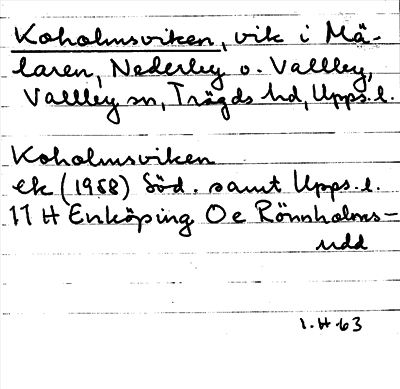 Koholmsviken, vik i Mä-
laren, Nederby o. Vallby,
Vallby sn, Trögds hd, Upps.l.
Koholmsviken
ek (1958) Söd. samt Upps.l.
11 H Enköping O e Rönnholms-
udd
1.H 63